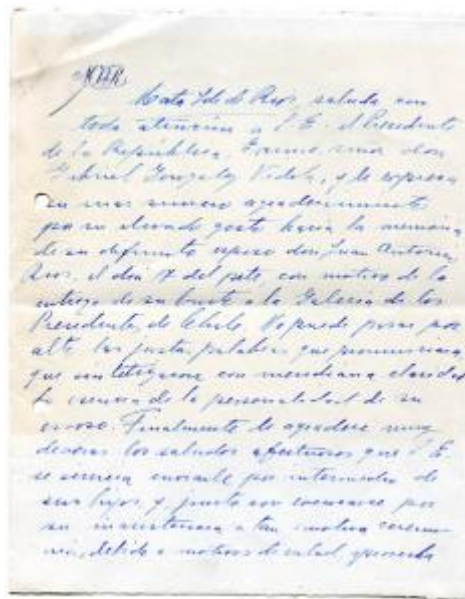 Marta Ide de Rios, saluda con
toda atención a S. E. el Presidente
de la República, Excmo. señor don
Gabriel González Videla, y le expresa
su mas sincero agradecimiento
por su elevado gesto hacia la memoria
de su difunto esposo don Juan Antonio
Rios, el dia 7 del pdo, con motivo de la
entrega de su busto a la Galeria de los
Presidentes de Chile. No puede pasar por
alto las justas palabras que
que con meridiana claridad
la esencia de la personalidad de su
esposo. Finalmente le agradece muy
deveras los saludos afectuosos que S. E.
se sirviera enviarle por intermedio de
sus hijos, y junto con excusarse por
su inasistencia a tan emotiva ceremo
nia, debido a motivos de salud,